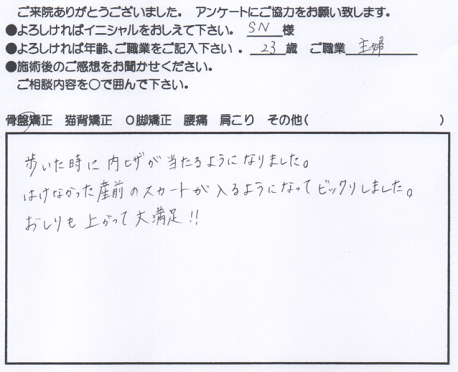 ご来院ありがとうございました。 アンケートにご協力をお願い致します。
●よろしければイニシャルをおしえて下さい。 SN 様
●よろしければ年齢、ご職業をご記入下さい。 23 歳 ご職業 主婦
●施術後のご感想をお聞かせください。
ご相談内容を〇で囲んで下さい。
骨盤矯正 猫背矯正 O脚矯正 腰痛 肩こり その他( )
歩いた時に内ヒザが当たるようになりました。
はけなかった産前のスカートが入るようになってビックリしました。
おしりも上がって大満足!!